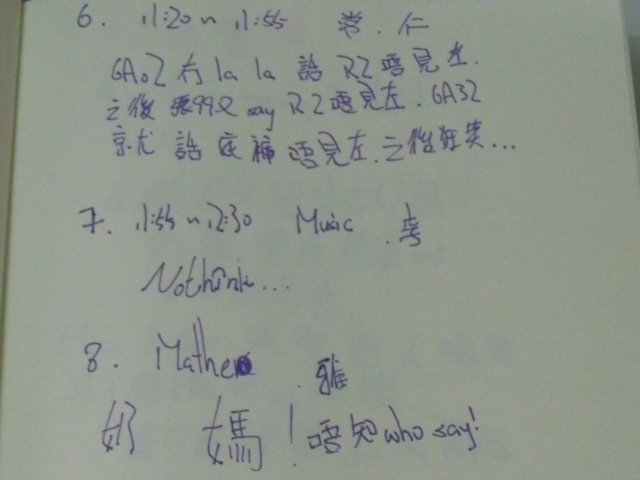 6. 11:20~11:55 常.仁
GA02冇 la la 話 R2唔見左.
之後 張99又 say R2唔見左. GA32
就 話 底褲 唔見左.之後狂笑...
7. 11:55~12:30 Music .考
Nothink...
8. Mathe .雅
奶 媽!唔知who say!